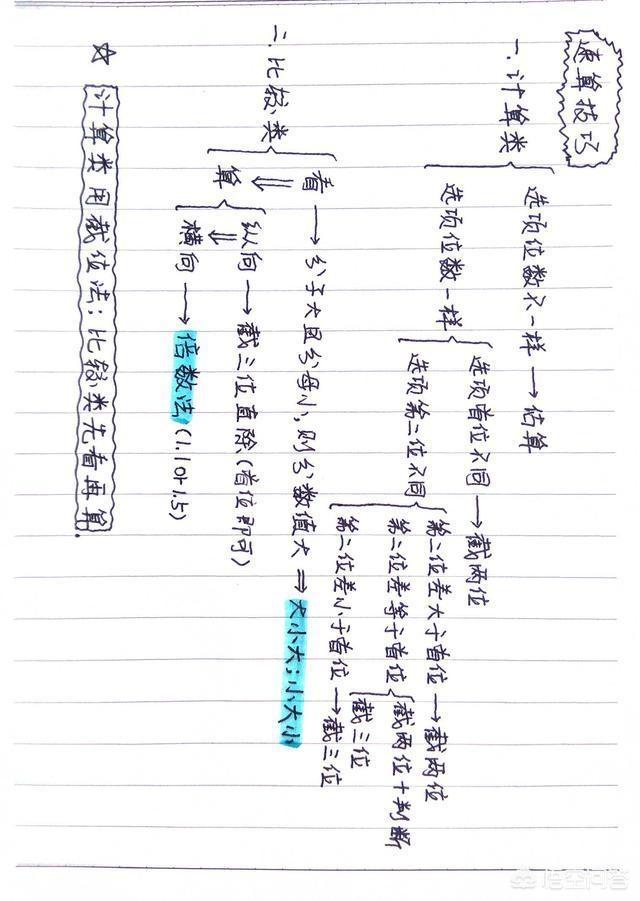 速算技巧
一.计算类
选项位数不一样→估算
选项位数一样
选项首位不同→截两位
选项第二位不同
第二位差大于首位→截两位
第二位差等于首位
截两位+判断
截三位
第二位差小于首位→截三位
二.比较类
看→分子大且分母小,则分数值大⇒大小大;小大小
⇓
算
纵向→截三位直除(首位即可)
⇓
横向→倍数法(1.1 or 1.5)
☆ 计算类用截位法;比较类先看再算.
悟空问答